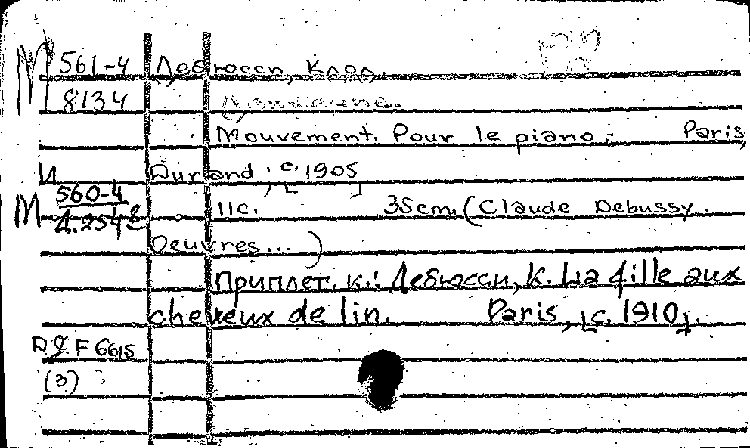 М 561-4 Дебюсси, Клод
8134
Mouvement. Pour le piano. Paris,
Durand, [c. 1905]
11c. 35cm. (Claude Debussy.
И
М 560-4
Oeuvres...)
Приплет. к.: Дебюсси, К. La fille aux
cheveux de lin. Paris, [c. 1910].
D8 F 6615
(3)